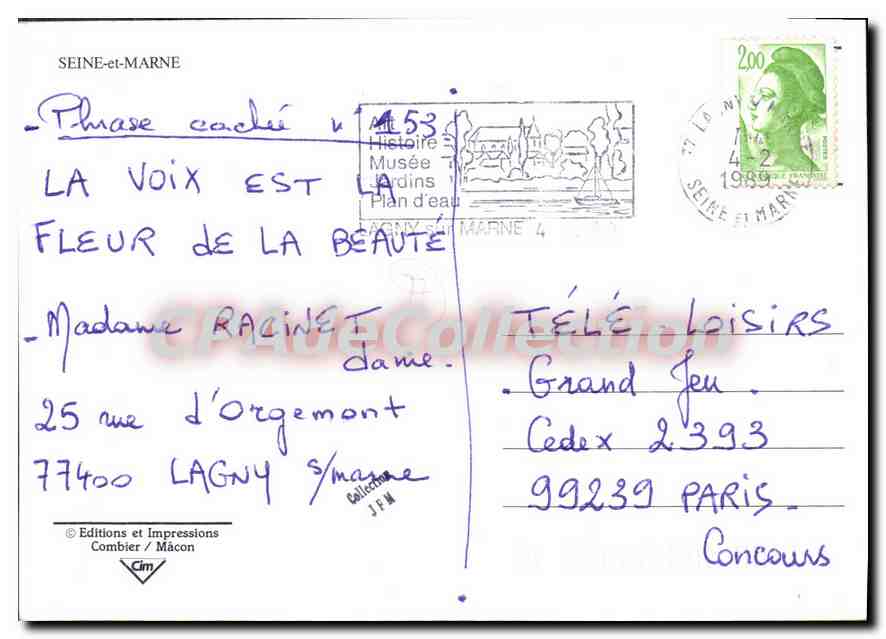 SEINE-et-MARNE
- Phrase cachée n° 153
LA VOIX EST LA
FLEUR de LA BEAUTÉ
- Madame RACINET
dame.
25 rue d'Orgemont
77400 LAGNY s/marne
Collection
J F M
© Editions et Impressions
Combier / Mâcon
Cim
Art
Histoire
Musée
Jardins
Plan d'eau
LAGNY sur MARNE 4
2,00
77 LAGNY S/M
4-2
1989
SEINE ET MARNE
TÉLÉ - LOISIRS
- Grand Jeu -
Cedex 2393
99239 PARIS -
Concours
CPAdeCollection